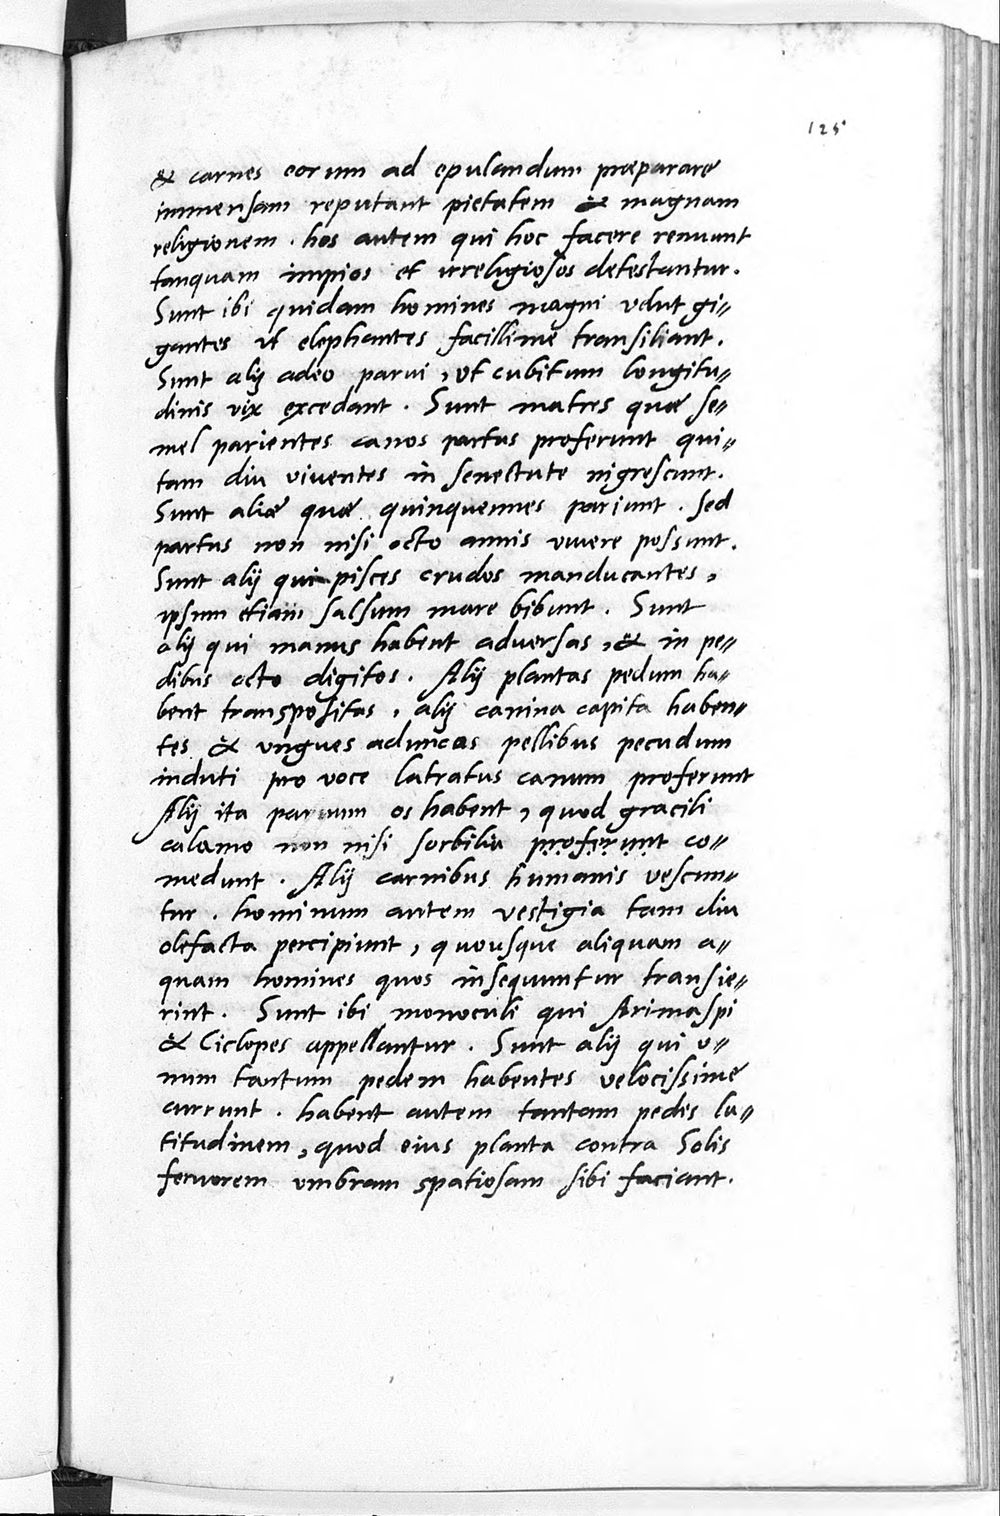 125
& carnes eorum ad epulandum præparare
immensam reputant pietatem & magnam
religionem. hos autem qui hoc facere renuunt
tanquam impios et irreligiosos detestantur.
Sunt ibi quidam homines magni velut gi„
gantes ut elephantes facillime transiliant.
Sunt alij adeo parui, ut cubitum longitu„
dinis vix excedant. Sunt matres quæ se„
mel parientes canos partus proferunt qui„
tam diu viuentes in senectute nigrescunt.
Sunt aliæ quæ quinquennes pariunt. sed
partus non nisi octo annis viuere possunt.
Sunt alij qui pisces crudos manducantes,
ipsum etiam salsum mare bibunt. Sunt
alij qui manus habent aduersas, & in pe„
dibus octo digitos. Alij plantas pedum ha„
bent transpositas, alij canina capita haben„
tes & vngues aduncas pellibus pecudum
induti pro voce latratus canum proferunt
Alij ita paruum os habent, quod gracili
calamo non nisi sorbilia proferunt co„
medunt. Alij carnibus humanis vescun„
tur. hominum autem vestigia tam diu
olefacta percipiunt, quousque aliquam a„
quam homines quos insequuntur transie„
rint. Sunt ibi monoculi qui Arimaspi
& Ciclopes appellantur. Sunt alij qui v„
num tantum pedem habentes velocissime
currunt. habent autem tantam pedis la„
titudinem, quod eius planta contra Solis
feruorem vmbram spatiosam sibi faciant.